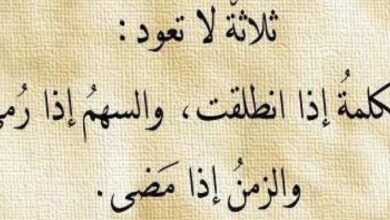 ثلاثة لا تعود :
كلمةُ إذا انطلقت، والسهمُ إذا رُمي
والزمنُ إذا مَضى.